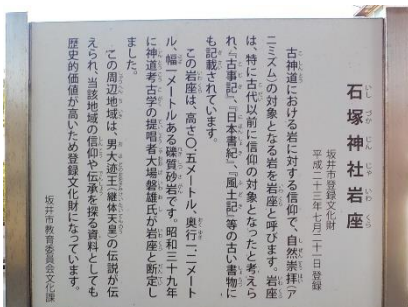 石塚神社岩座
いしづかじんじゃいわくら
坂井市登録文化財
平成二十三年七月二十一日登録
古神道における岩に対する信仰で、自然崇拝(ア
ニミズム)の対象となる岩を岩座と呼びます。岩座
は、特に古代以前に信仰の対象となったと考えら
れ、『古事記』、『日本書紀』、『風土記』等の古い書物に
も記載されています。
この岩座は、高さ〇.五メートル、奥行一二メート
ル、幅一一メートルある礫質砂岩です。昭和三十九年
に神道考古学の提唱者大場磐雄氏が岩座と断定し
ました。
この周辺地域は、男大迹王(継体天皇)の伝説が伝
えられ、当該地域の信仰や伝承を探る資料としても
歴史的価値が高いため登録文化財になっています。
坂井市教育委員会文化課